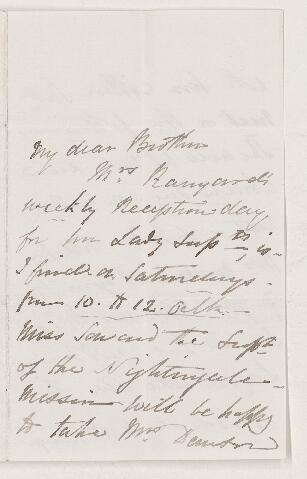 My dear Brother
Mrs Ranyard's
weekly Reception day
for her Lady Supts, is -
I find on Saturdays -
from 10. to 12. o'clk. -
Miss the Supt
of the Nightingale -
Mission will be happy
to take Mrs